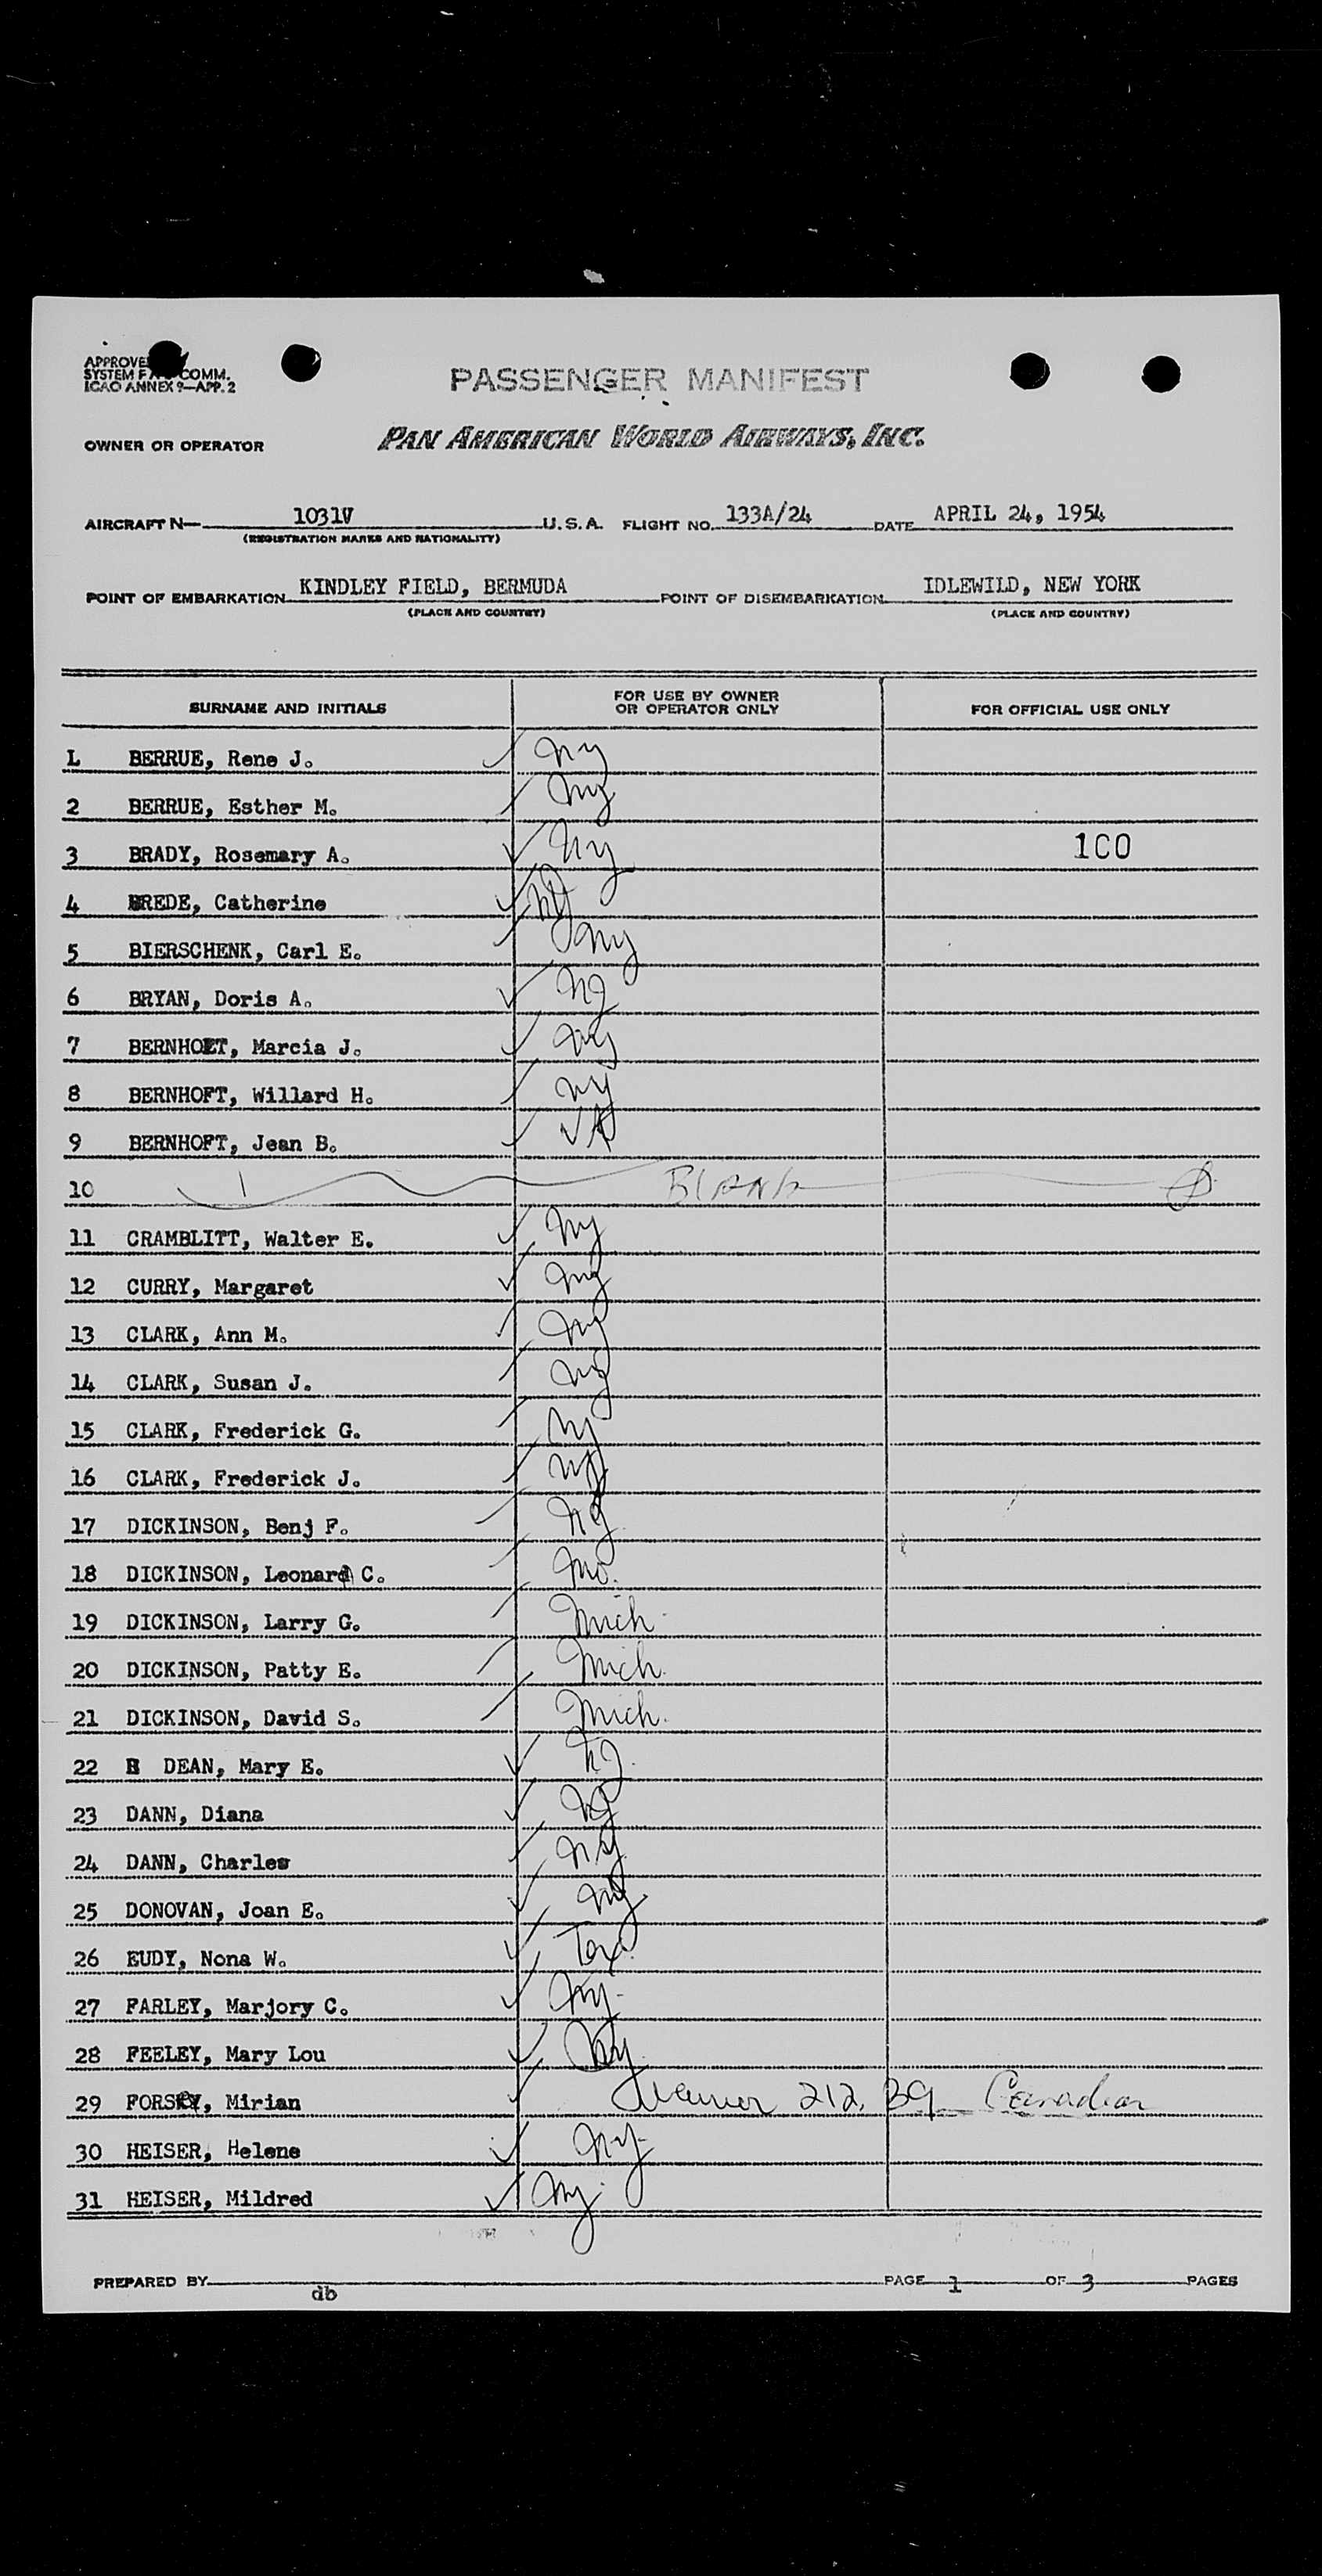 APPROVE
SYSTEM F COMM.
ICAO ANNEX 9—APP. 2
PASSENGER MANIFEST
OWNER OR OPERATOR PAN AMERICAN WORLD AIRWAYS, INC.
AIRCRAFT N— 1031V U.S.A. FLIGHT NO. 133A/24 DATE APRIL 24, 1954
(REGISTRATION MARKS AND NATIONALITY)
POINT OF EMBARKATION KINDLEY FIELD, BERMUDA POINT OF DISEMBARKATION IDLEWILD, NEW YORK
(PLACE AND COUNTRY) (PLACE AND COUNTRY)
SURNAME AND INITIALS FOR USE BY OWNER OR OPERATOR ONLY FOR OFFICIAL USE ONLY
1 BERRUE, Rene J. ny
2 BERRUE, Esther M. ny
3 BRADY, Rosemary A. ny 100
4 BREDE, Catherine
5 BIERSCHENK, Carl E. ny
6 BRYAN, Doris A.
7 BERNHOFT, Marcia J. ny
8 BERNHOFT, Willard H. ny
9 BERNHOFT, Jean B. VA
10 Blank
11 CRAMBLITT, Walter E. ny
12 CURRY, Margaret ny
13 CLARK, Ann M. ny
14 CLARK, Susan J. ny
15 CLARK, Frederick G. ny
16 CLARK, Frederick J. ny
17 DICKINSON, Benj F.
18 DICKINSON, Leonard C. Mo.
19 DICKINSON, Larry G. Mich.
20 DICKINSON, Patty E. Mich.
21 DICKINSON, David S. Mich.
22 DEAN, Mary E.
23 DANN, Diana
24 DANN, Charles ny
25 DONOVAN, Joan E. ny
26 EUDY, Nona W. Tex.
27 FARLEY, Marjory C. ny.
28 FEELEY, Mary Lou ny.
29 FORSEY, Mirian Waiver 212. B9 Canadian
30 HEISER, Helene ny.
31 HEISER, Mildred ny.
PREPARED BY db PAGE 1 OF 3 PAGES